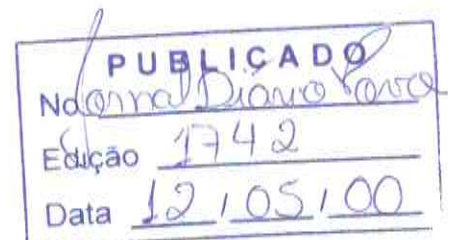 PUBLICADO
No Jornal Diário Povo
Edição 1742
Data 12/05/00